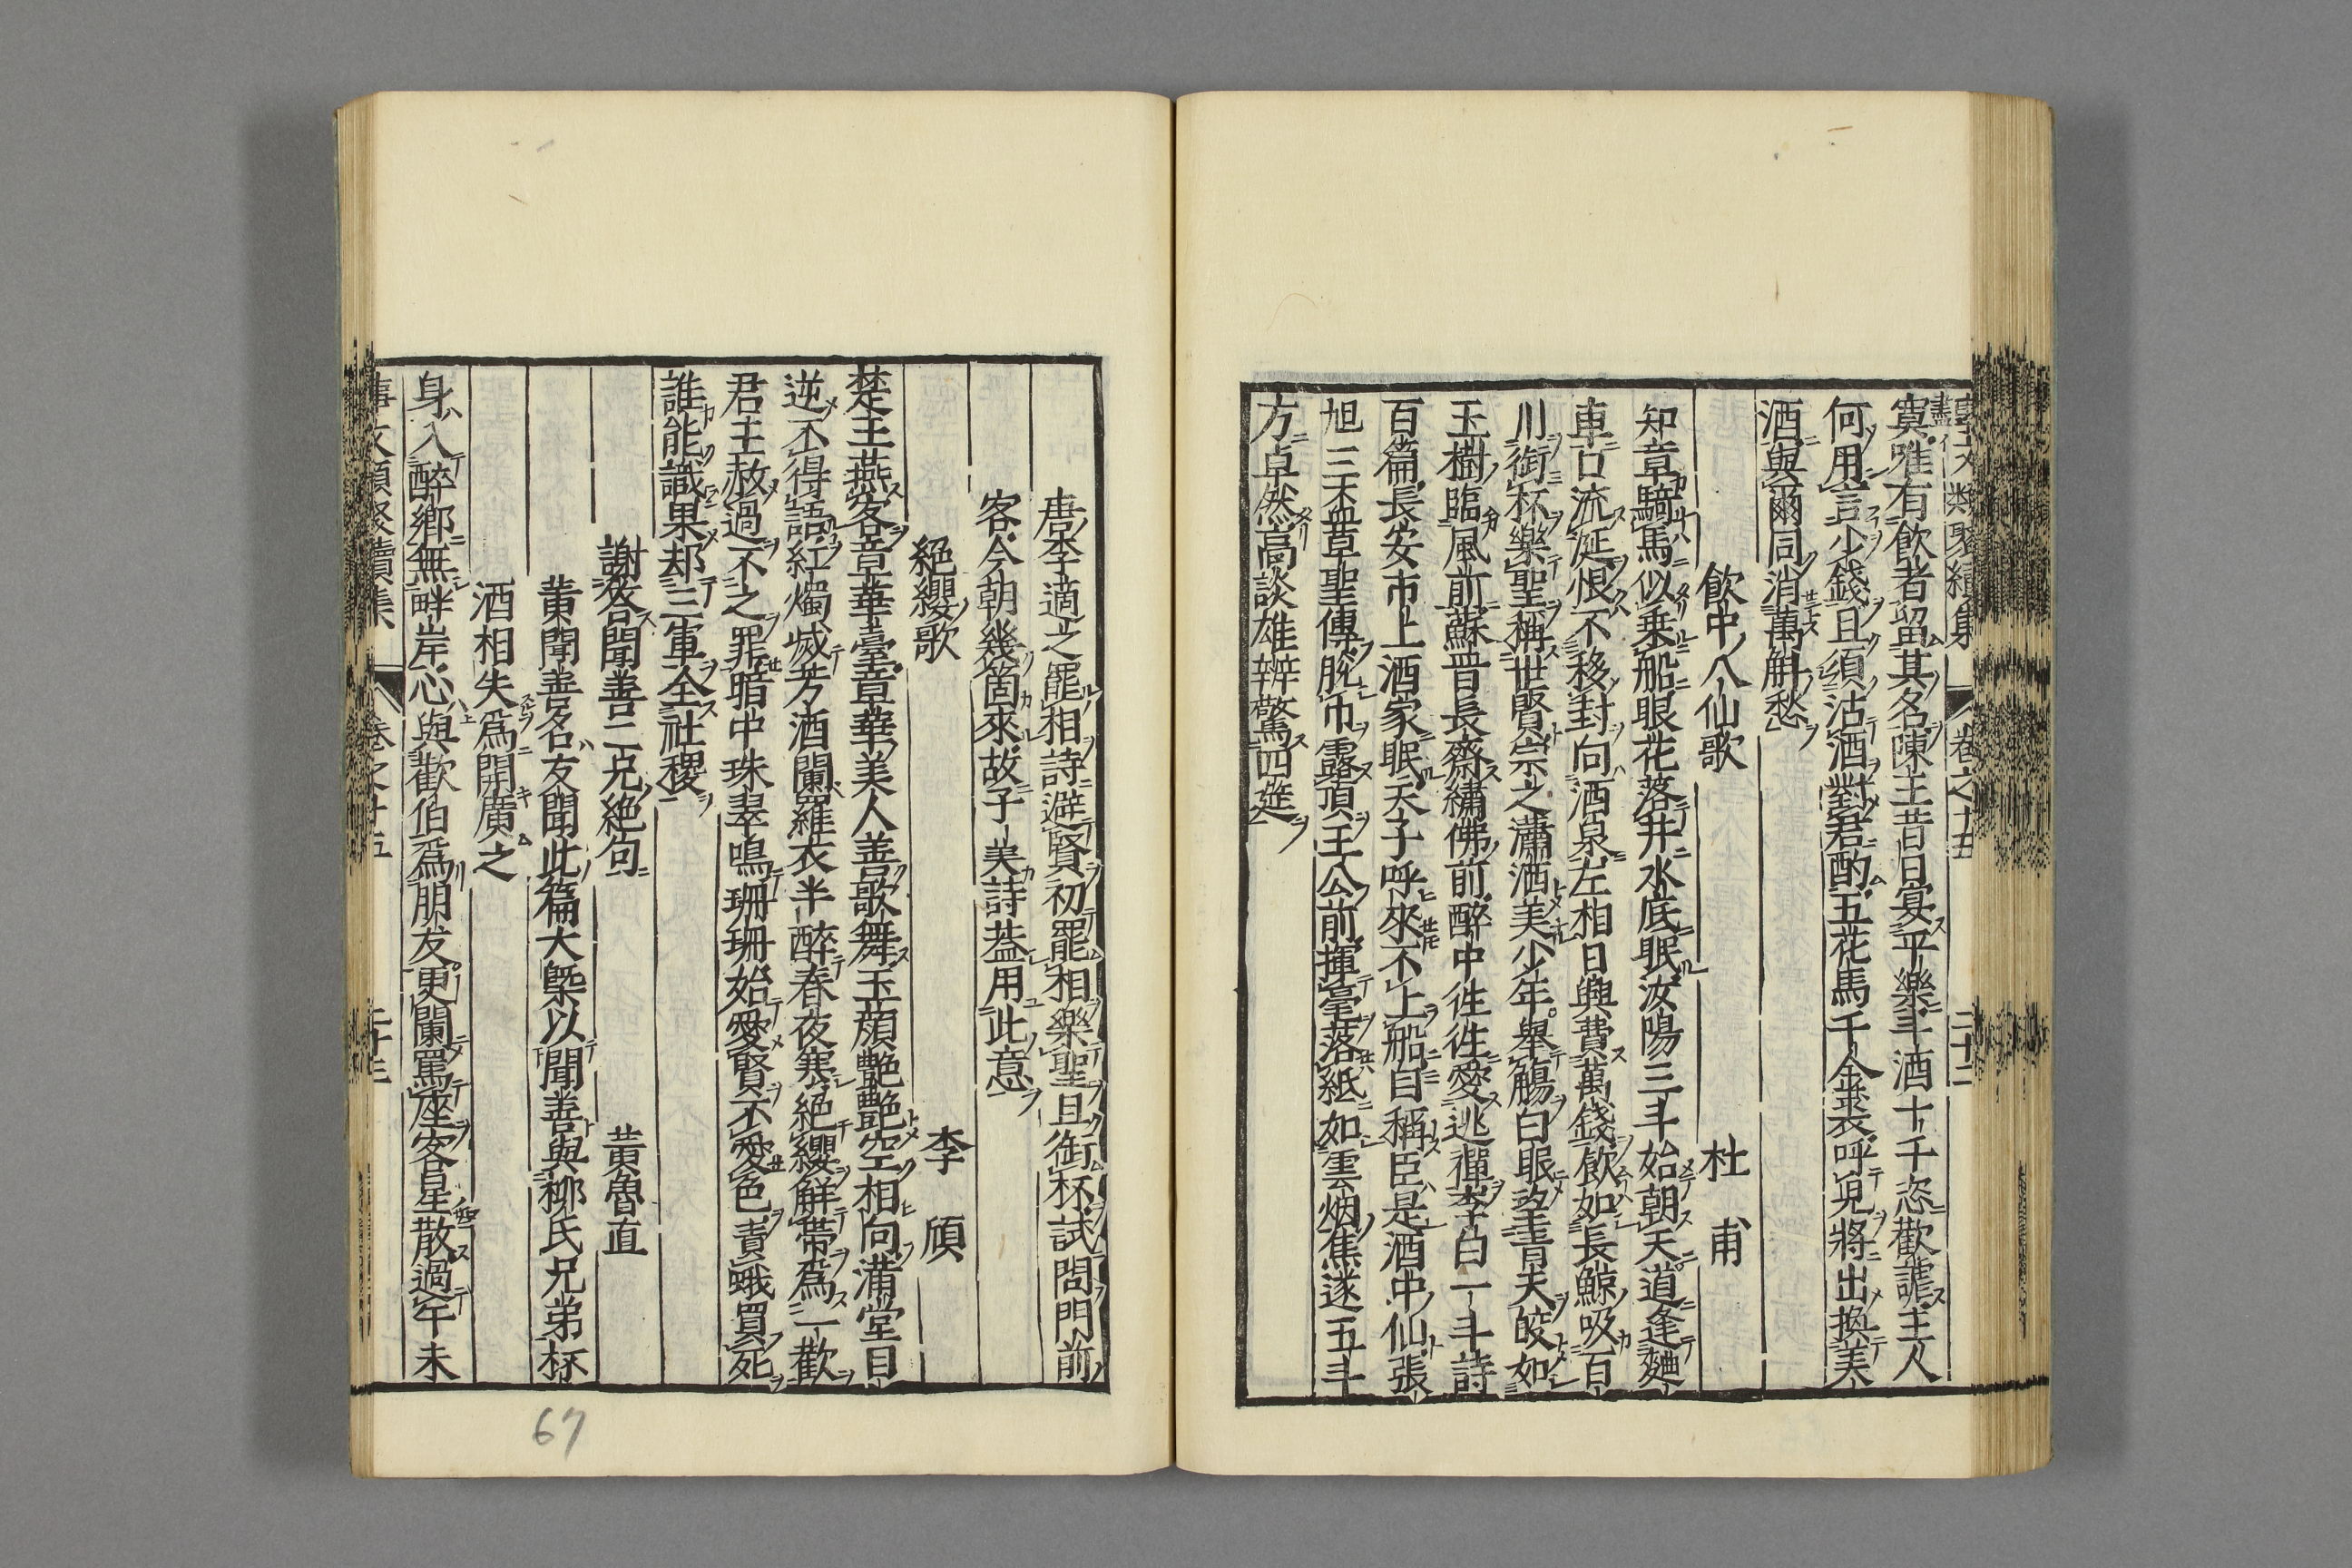 寞唯有飲者留其名陳王昔日宴平樂斗酒十千恣歡謔主人
何用言少錢且須沽酒對君酌五花馬千金裘呼兒將出換美
酒與爾同消萬斛愁
飲中八仙歌 杜甫
知章騎馬似乗船眼花落井水底眠汝陽三斗始朝天道逢麯
車口流涎恨不移封向酒泉左相日興費萬錢飲如長鯨吸百
川銜杯樂聖稱世賢宗之瀟洒美少年舉觴白眼望青天皎如
玉樹臨風前蘇晋長齋繡佛前醉中徃徃愛逃禪李白一斗詩
百篇長安市上酒家眠天子呼來不上船自稱臣是酒中仙張
旭三盃草聖傳脫巾露頂王公前揮毫落紙如雲烟焦遂五斗
方卓然高談雄辨驚四筵
唐李適之罷相詩避賢初罷相樂聖且銜杯試問門前
客今朝幾箇來故子美詩葢用此意
絕纓歌 李頎
楚王燕客章華臺章華美人善歌舞玉顔艶艶空相向滿堂目
逆不得語紅燭滅芳酒闌羅衣半醉春夜寒絕纓解帶爲一歡
君王赦過不之罪暗中珠翠鳴珊珊始愛賢不愛色責蛾買死
誰能識果却三軍全社稷
謝答聞善二兄絕句 黄魯直
黄聞善名友聞此篇大槩以聞善與柳氏兄弟杯
酒相失爲開廣之
身入醉鄉無畔岸心與歡伯爲朋友更闌罵座客星散過午未
事文類聚續集 卷之十五
67